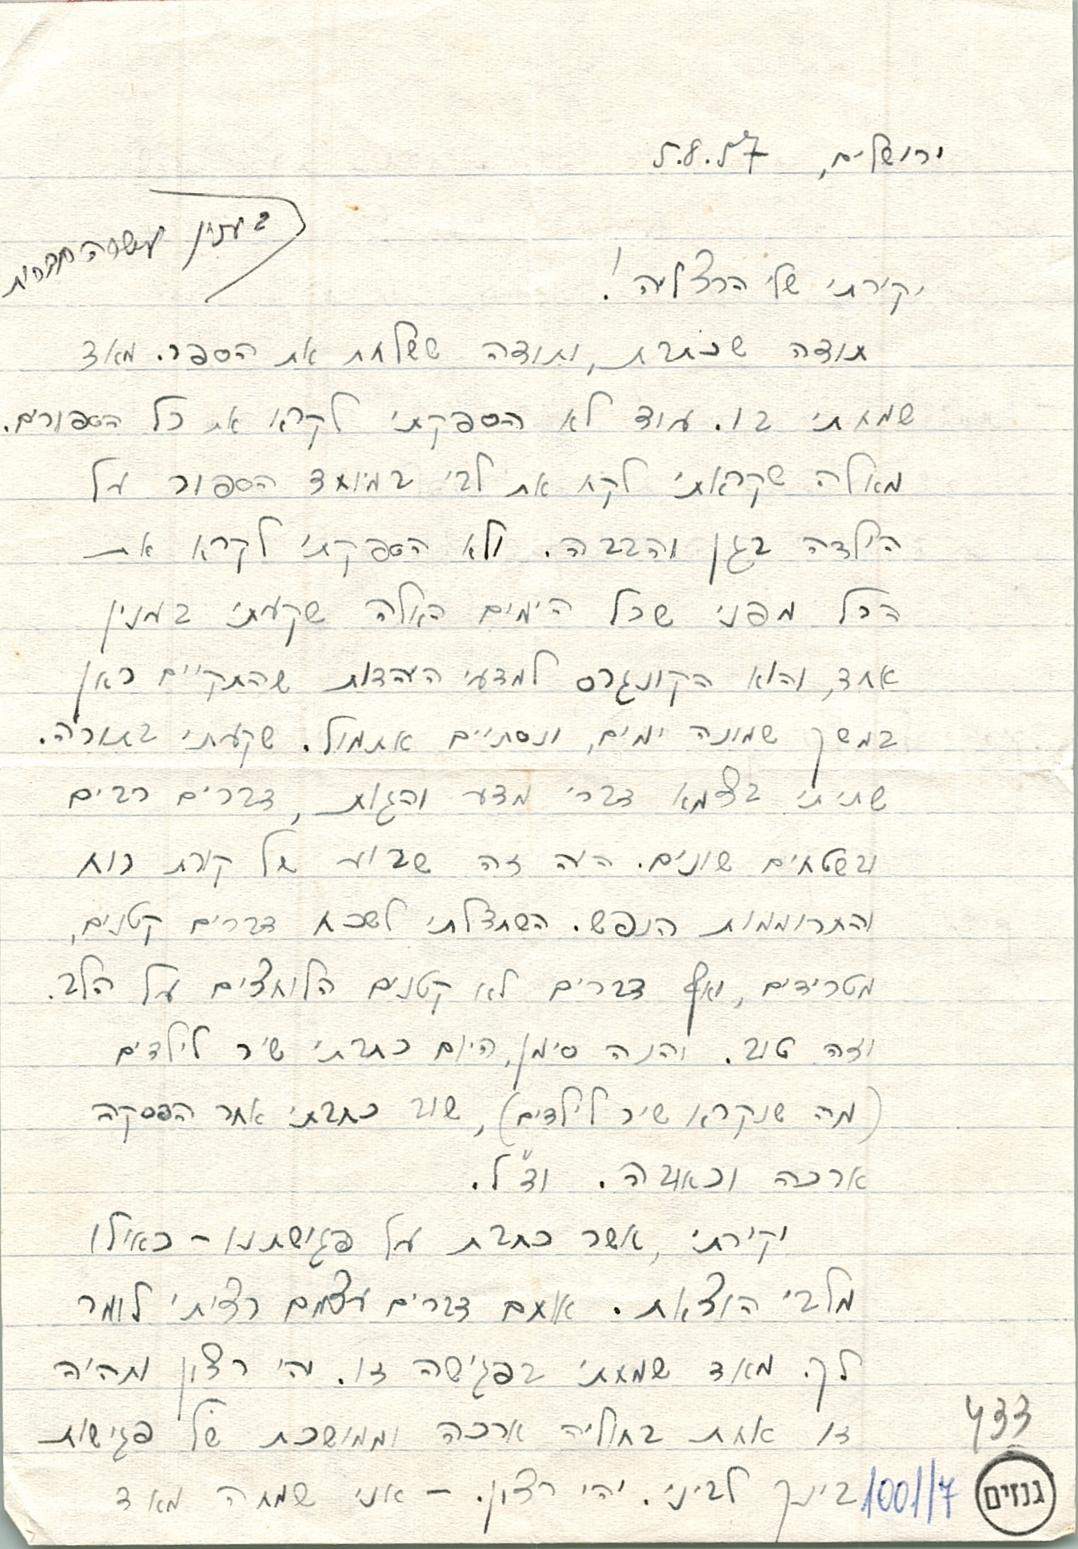 ירושלים, 5.8.57
בענין עשרה חברות
יקירתי שלי הרצליה!
תודה שכתבת, ותודה ששלחת את הספר. מאד
שמחתי בו. עוד לא הספקתי לקרא את כל הספורים.
מאלה שקראתי לקח את לבי במיוחד הספור על
הילדה בגן והבבה. ולא הספקתי לקרא את
הכל מפני שכל הימים האלה שקעתי בענין
אחד, והוא הקונגרס למדעי היהדות שהתקיים כאן
במשך שמונה ימים, ונסתיים אתמול. שקעתי בתורה.
שתיתי בצמא דברי מדע והגות, דברים רבים
ובשטחים שונים. היה זה שבוע של קורת רוח
והתרוממות הנפש. השתדלתי לשכח דברים קטנים,
מטרידים, ואף דברים לא קטנים הלוחצים על הלב.
וזה טוב. והנה סימן, היום כתבתי שיר לילדים
(מה שנקרא שיר לילדים), שוב כתבתי אחר הפסקה
ארכה וכאובה. וצ"ל.
יקירתי, אשר כתבת על פגישתנו – כאילו
מלבי הוצאת. אותם דברים עצמם רציתי לומר
לך. מאד שמחתי בפגישה זו. יהי רצון ותהיה
זו אחת בחוליה ארכה וממושכת של פגישות
בינך לביני. יהי רצון. – אני שמחה מאד
433
1001/7
גנזים